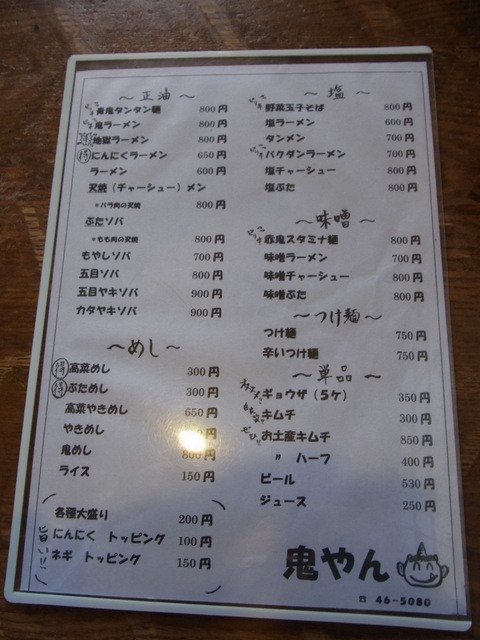 ～正油～
青鬼タンタン麺 800円
鬼ラーメン 800円
地獄ラーメン 800円
得 にんにくラーメン 650円
ラーメン 600円
炙焼（チャーシュー）メン
＊バラ肉の炙焼 800円
ぶたソバ
＊もも肉の炙焼 800円
もやしソバ 700円
五目ソバ 800円
五目ヤキソバ 900円
カタヤキソバ 900円
～めし～
得 高菜めし 300円
得 ぶためし 300円
高菜やきめし 650円
やきめし
鬼めし 800円
ライス 150円
旨い!!
各種大盛り 200円
にんにく トッピング 100円
ネギ トッピング 150円
～塩～
野菜玉子そば 800円
塩ラーメン 600円
タンメン 700円
バクダンラーメン 700円
塩チャーシュー 800円
塩ぶた 800円
～味噌～
赤鬼スタミナ麺 800円
味噌ラーメン 700円
味噌チャーシュー 800円
味噌ぶた 800円
～つけ麺～
つけ麺 750円
辛いつけ麺 750円
～単品～
オススメ ギョウザ（5ケ） 350円
キムチ 300円
ぜひ!! お土産キムチ 850円
〃 ハーフ 400円
ビール 530円
ジュース 250円
鬼やん
☎ 46-5080